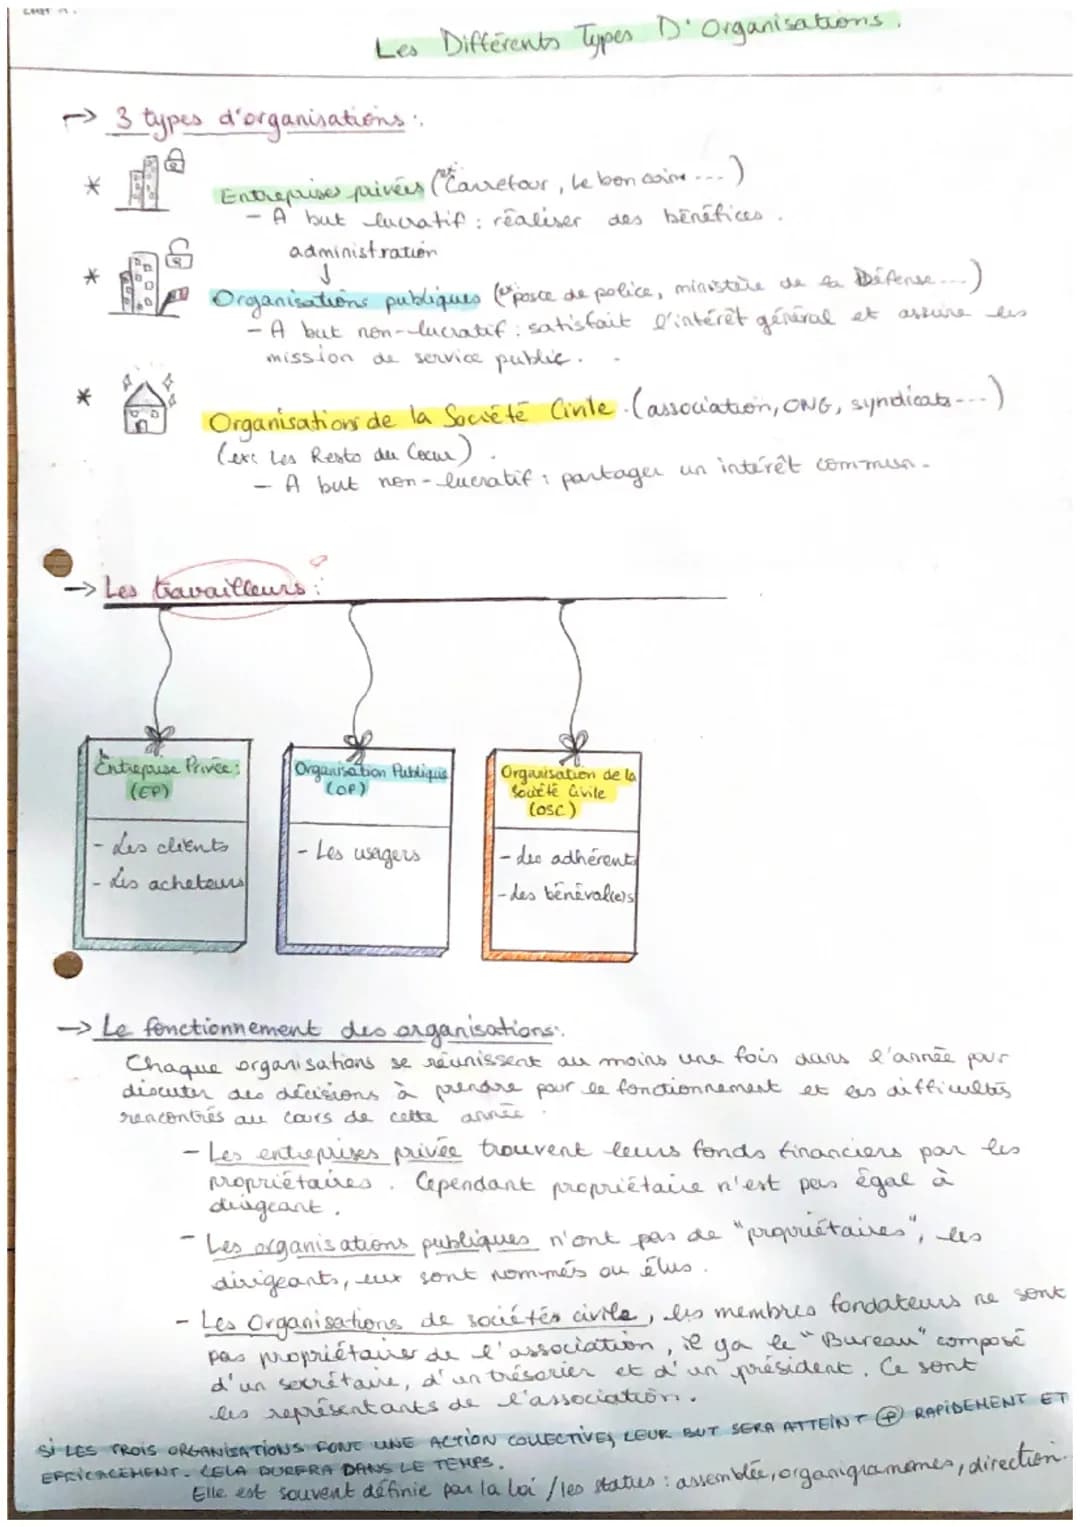 Les Différents Types D'Organisations.
→ 3 types d'organisations :
* Entreprises privées (ex: Carrefour, Le bon coin ---)
- A but lucratif : réaliser des bénéfices.
administration
↓
* Organisations publiques (ex: posce de police, ministère de la Défense ---)
- A but non-lucratif : satisfait l'intérêt général et assure les
mission de service public.
* Organisations de la Société Civile. (association, ONG, syndicats ---)
(ex: Les Resto du Cœur).
- A but non-lucratif : partager un intérêt commun.
→ Les travailleurs :
Entreprise Privée :
(EP)
- Les clients
- Les acheteurs
Organisation Publique
(OP)
- Les usagers
Organisation de la
Société Civile
(OSC)
- des adhérents
- des bénéval(e)s
→ Le fonctionnement des organisations :
Chaque organisations se réunissent au moins une fois dans l'année pour
discuter des décisions à prendre pour le fonctionnement et les difficultés
rencontrés au cours de cette année.
- Les entreprises privée trouvent leurs fonds financiers par les
propriétaires. Cependant propriétaire n'est pas égal à
dirigeant.
- Les organisations publiques n'ont pas de "propriétaires", les
dirigeants, eux sont nommés ou élus.
- Les Organisations de sociétés civile, les membres fondateurs ne sont
pas propriétaires de l'association, il ya le "Bureau" composé
d'un secrétaire, d'un trésorier et d'un président. Ce sont
les représentants de l'association.
SI LES TROIS ORGANISATIONS FONT UNE ACTION COLLECTIVE, LEUR BUT SERA ATTEINT ⊕ RAPIDEMENT ET
EFFICACEMENT. CELA DURERA DANS LE TEMPS.
Elle est souvent définie par la loi / les status : assemblée, organigrammes, direction.